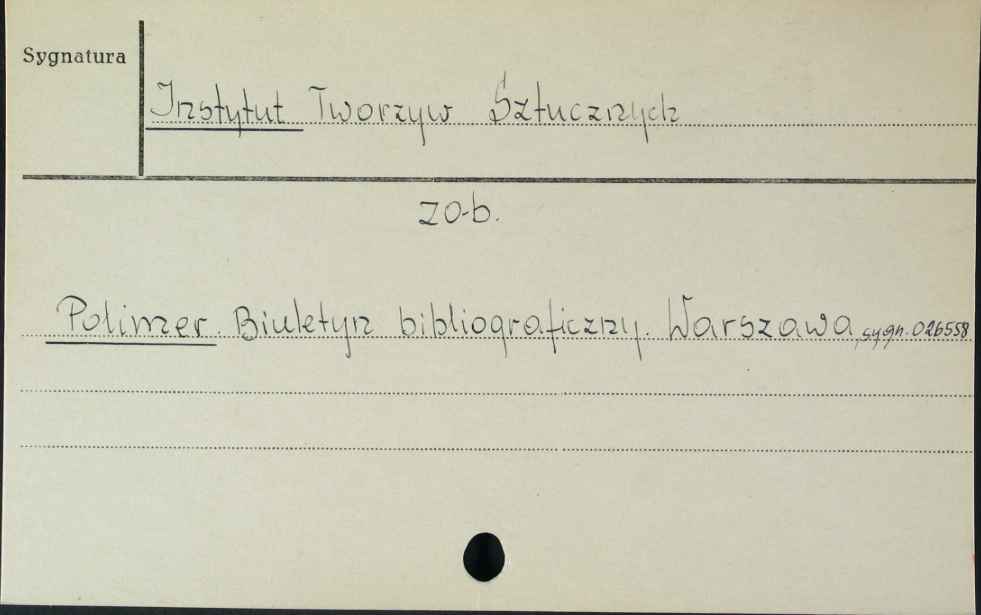 Sygnatura
Instytut Tworzyw Sztucznych
zob.
Polimer. Biuletyn bibliograficzny. Warszawa, sygn. 026558